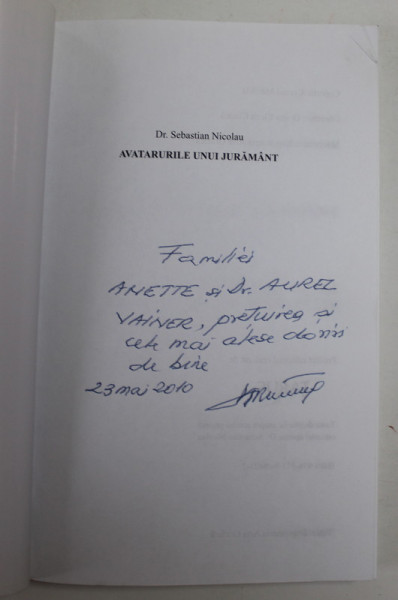 Dr. Sebastian Nicolau
AVATARURILE UNUI JURĂMÂNT
Familiei
ANETTE și Dr. AUREL
VAINER, prețuirea și
cele mai alese doriri
de bine
23 mai 2010